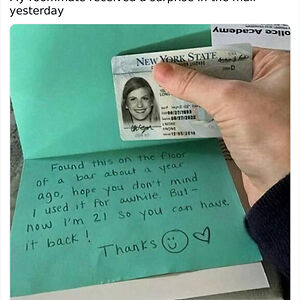 My roommate received a surprise in the mail
yesterday
olice Academy
NEW YORK STATE
Found this on the floor
of a bar about a year
ago, hope you don't mind
I used it for awhile. But -
now I'm 21 so you can have
it back!
Thanks